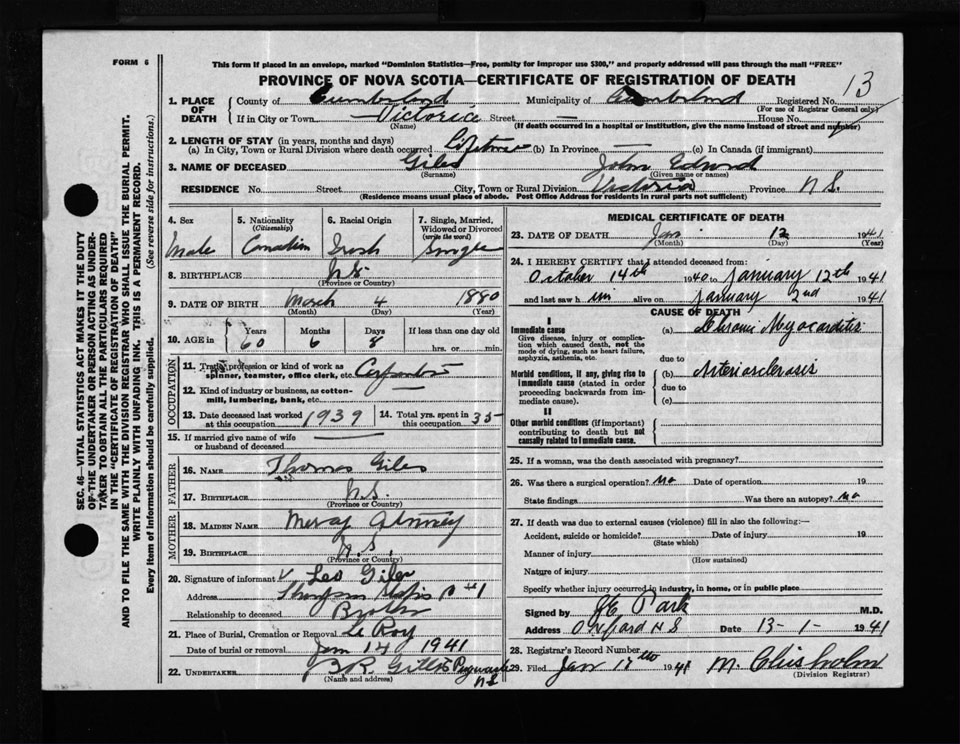 FORM 6
This form if placed in an envelope, marked "Dominion Statistics—Free, penalty for improper use $300," and properly addressed will pass through the mail "FREE"
PROVINCE OF NOVA SCOTIA—CERTIFICATE OF REGISTRATION OF DEATH
13
1. PLACE OF DEATH County of Cumberland Municipality of Cumberland Registered No.
(For use of Registrar General only)
If in City or Town Victoria Street — House No.
(Name) (If death occurred in a hospital or institution, give the name instead of street and number)
2. LENGTH OF STAY (in years, months and days)
(a) In City, Town or Rural Division where death occurred Lifetime (b) In Province — (c) In Canada (if immigrant)
3. NAME OF DECEASED Giles John Edward
(Surname) (Given name or names)
RESIDENCE No. Street City, Town or Rural Division Victoria Province N.S.
(Residence means usual place of abode. Post Office Address for residents in rural parts not sufficient)
4. Sex 5. Nationality (Citizenship) 6. Racial Origin 7. Single, Married, Widowed or Divorced (write the word)
Male Canadian Irish Single
8. BIRTHPLACE N.S.
(Province or Country)
9. DATE OF BIRTH March 4 1880
(Month) (Day) (Year)
10. AGE in Years Months Days If less than one day old
60 6 8 hrs. or min.
OCCUPATION
11. Trade, profession or kind of work as spinner, teamster, office clerk, etc. Carpenter
12. Kind of industry or business, as cotton-mill, lumbering, bank, etc.
13. Date deceased last worked at this occupation 1939 14. Total yrs. spent in this occupation 35
15. If married give name of wife or husband of deceased —
FATHER
16. NAME Thomas Giles
17. BIRTHPLACE N.S.
(Province or Country)
MOTHER
18. MAIDEN NAME
19. BIRTHPLACE N.S.
(Province or Country)
20. Signature of informant Leo Giles
Address Thompson #1
Relationship to deceased Brother
21. Place of Burial, Cremation or Removal Le Roy
Date of burial or removal Jan 14 1941
22. UNDERTAKER Pugwash N.S.
(Name and address)
MEDICAL CERTIFICATE OF DEATH
23. DATE OF DEATH Jan 12 1941
(Month) (Day) (Year)
24. I HEREBY CERTIFY that I attended deceased from:
October 14th 1940 to January 12th 1941
and last saw h im alive on January 2nd 1941
CAUSE OF DEATH
I
Immediate cause
Give disease, injury or complication which caused death, not the mode of dying, such as heart failure, asphyxia, asthenia, etc.
(a) Chronic Myocarditis
due to
Morbid conditions, if any, giving rise to immediate cause (stated in order proceeding backwards from immediate cause).
(b) Arteriosclerosis
due to
(c)
II
Other morbid conditions (if important) contributing to death but not causally related to immediate cause.
25. If a woman, was the death associated with pregnancy?
26. Was there a surgical operation? no Date of operation 19
State findings Was there an autopsy? no
27. If death was due to external causes (violence) fill in also the following:—
Accident, suicide or homicide? Date of injury 19
(State which)
Manner of injury
(How sustained)
Nature of injury
Specify whether injury occurred in industry, in home, or in public place
Signed by Park M.D.
Address Oxford N S Date 13-1- 1941
28. Registrar's Record Number
29. Filed Jan 1941 M. Chisholm
(Division Registrar)
SEC. 46—VITAL STATISTICS ACT MAKES IT THE DUTY
OF THE UNDERTAKER OR PERSON ACTING AS UNDER-
TAKER TO OBTAIN ALL THE PARTICULARS REQUIRED
IN THE "CERTIFICATE OF REGISTRATION OF DEATH"
AND TO FILE THE SAME WITH THE DIVISION REGISTRAR WHO SHALL ISSUE THE BURIAL PERMIT.
WRITE PLAINLY WITH UNFADING INK. THIS IS A PERMANENT RECORD.
Every item of information should be carefully supplied. (See reverse side for instructions.)